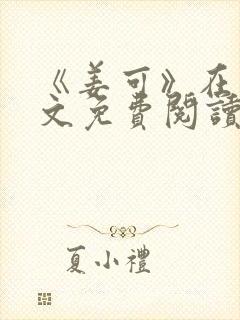 《姜可》在
文免費閱讀
夏小禮